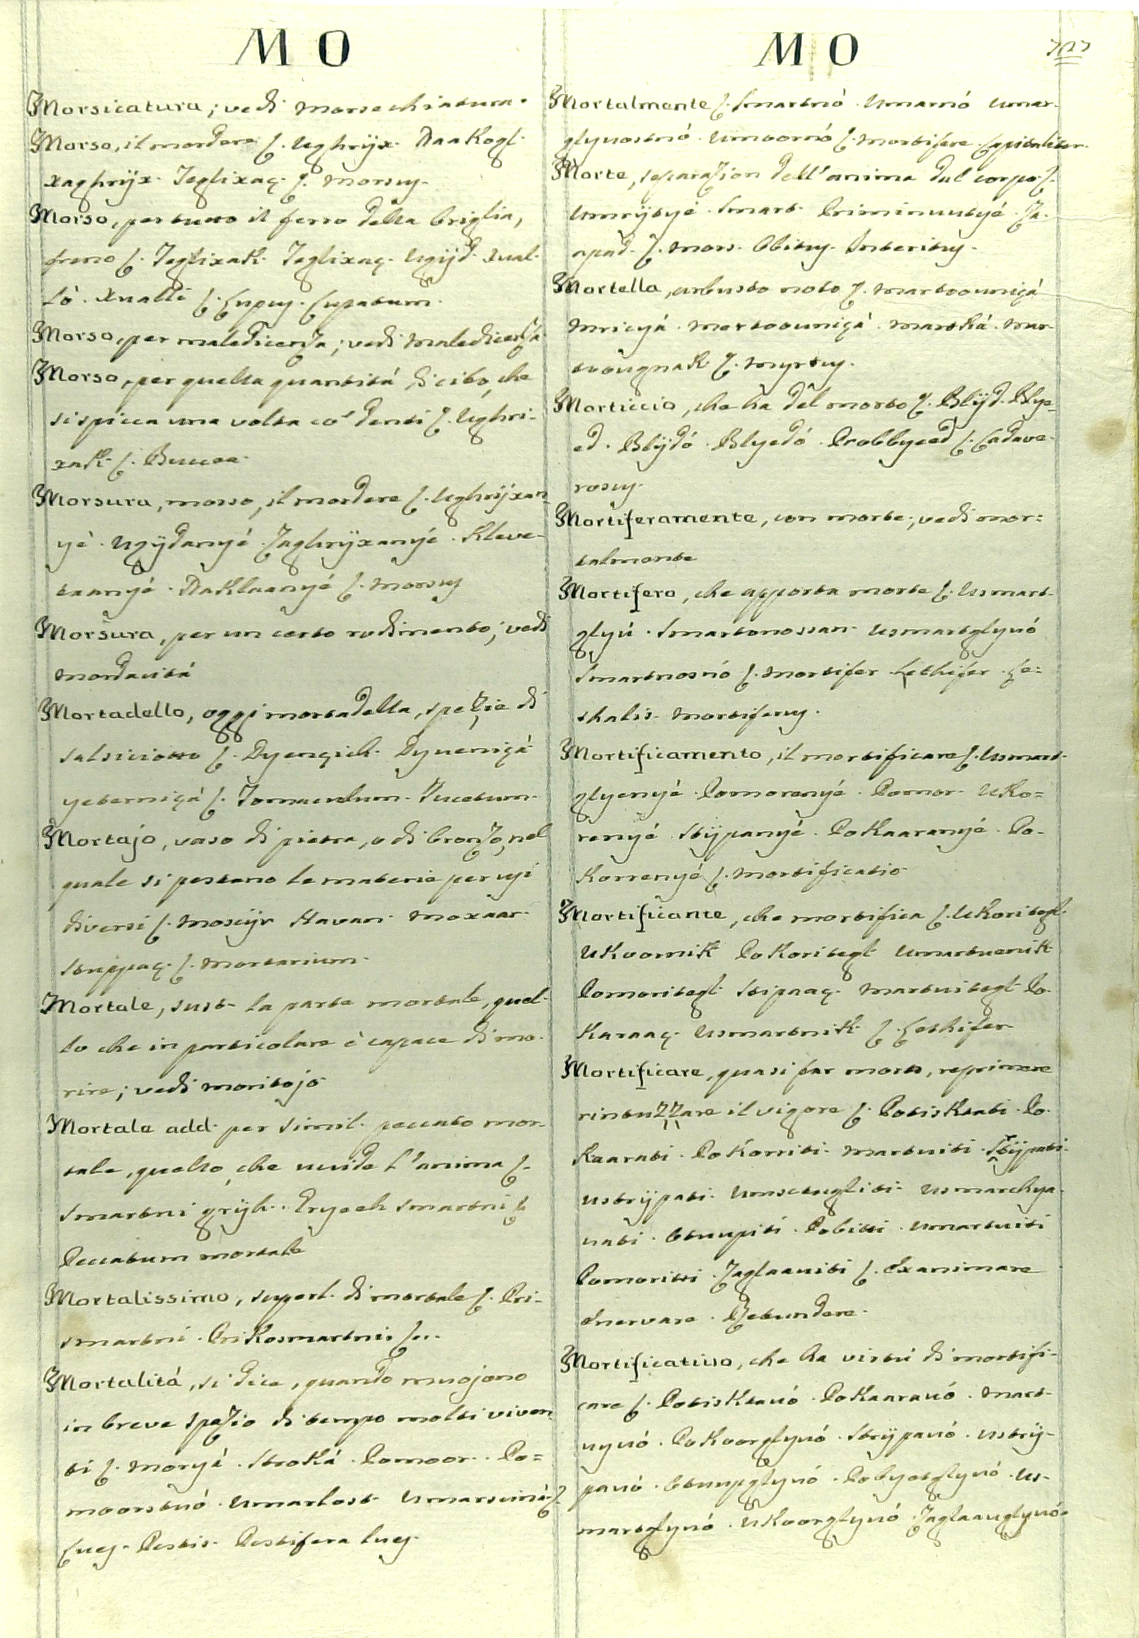 MO
Morsicatura; vedi morsechiatura.
Morso, il mordere. Ʃ. Ughrijx. Naakogl.
xaghrijx. Ʒeglixaç. Ʃ. Morsus.
Morso, per tutto il ferro della briglia,
freno Ʃ. Ʒeglixak. Ʒeglixaç. Ugijd. Xual-
lò. Xualli Ʃ. Lupus. Lupatum.
Morso, per maledicenza; vedi maledicenza.
Morso, per quella quantità di cibo, che
si spicca una volta có denti Ʃ. Ughri-
xak. Ʃ. Buccea.
Morsura, morso, il mordere Ʃ. Ughrijxan-
yé. Ugijdanyé. Ʒaghrijxanyé. Kleve-
taanyé. Naklaanyé Ʃ. Morsus
Morsura, per un certo rodimento; vedi
mordacità
Mortadello, oggi mortadella, spezie di
salsiciotto Ʃ. Dyençich. Dyueniçá
yeterniçá Ʃ. Tomaculum. Tucetum.
Mortajo, vaso di pietra, o di bronzo, nel
quale si pestano le materie per usi
diversi Ʃ. Moscijr Havan. Moxaar.
stuppaç. Ʃ. Mortarium.
Mortale, sust. la parte mortale, quel-
lo che in particolare è capace di mo-
rire; vedi moritojo
Mortale add. per simil. peccato mor-
tale, quello, che uccide l'anima Ʃ.
smartni grijh. Gryeeh smartni Ʃ
Peccatum mortale
Mortalissimo, superl. di mortale Ʃ. Pri-
smartni. Prikosmartnii Ʃ..
Mortalità, si dice, quando muojono
in breve spazio di tempo molti viven-
ti Ʃ. Moryá. Stroká. Pomoor. Po=
moorstuó. Umarlost. Umarscinà Ʃ.
Lues. Pestis. Pestifera lues.
MO
Mortalmente Ʃ. Smartnó. Umarnó umar-
glyuostnó. Umoornó Ʃ. Mortifere. Capitaliter.
Morte, separazion dell'anima dal corpo Ʃ.
Umrytyé. Smart. Priminuutyé. Ʒa-
apad. Ʃ. Mors. Obitus. Interitus.
Mortella, arbusto noto Ʃ. Martouniçá
Mricyá. Mertoouniçá. Martká. Mar-
tvougnak. Ʃ. Myrtus.
Morticcio, che ha del morto Ʃ. Blijd. Blye-
ed. Blijdó. Blyedó. Problyeed Ʃ. Cadave-
rosus.
Mortiferamente, con morte; vedi mor=
talmente
Mortifero, che apporta morte Ʃ. Usmart-
glyú. Smartonossan. Usmartglyuó
Smartnosnó Ʃ. Mortifer Lethifer. Le=
thalis. Mortiferus.
Mortificamento, il mortificare Ʃ. Usmart-
glyenyé. Pomorenyé. Pomor. Uko=
renyé. Stijpanyé. Pokaaranyé. Po-
korrenyé Ʃ. Mortificatio
Mortificante, che mortifica Ʃ. Ukoritegl.
Ukoornik Pokoritegl. Umartuenik
Pomoritegl. Stipaaç. Martuitegl. Po-
karaaç. Usmartnik. Ʃ. Lethifer
Mortificare, quasi far morto, reprimere
rintuzzare il vigore Ʃ. Potisktati. Po-
kaarati. Pokorriti. Martuiti. Stijpati.
ustrijpati. Umsctugliti. Usmarchya-
uati. Otuupiti. Pobitti. Umartuiti
Pomoritti. Ʒaglaauiti Ʃ. Exanimare
enervare. Retundere.
Mortificativo, che ha virtú di mortifi-
care Ʃ. Potisktauó. Pokaarauó. Mart-
uyuó. Pokoorglyuó. Strijpauó. Ustrij-
pauó. Otuupglyuó. Pobyotglyuó. Us-
martglyuó. Ukoorglyuó. Ʒaglaauglyuó.